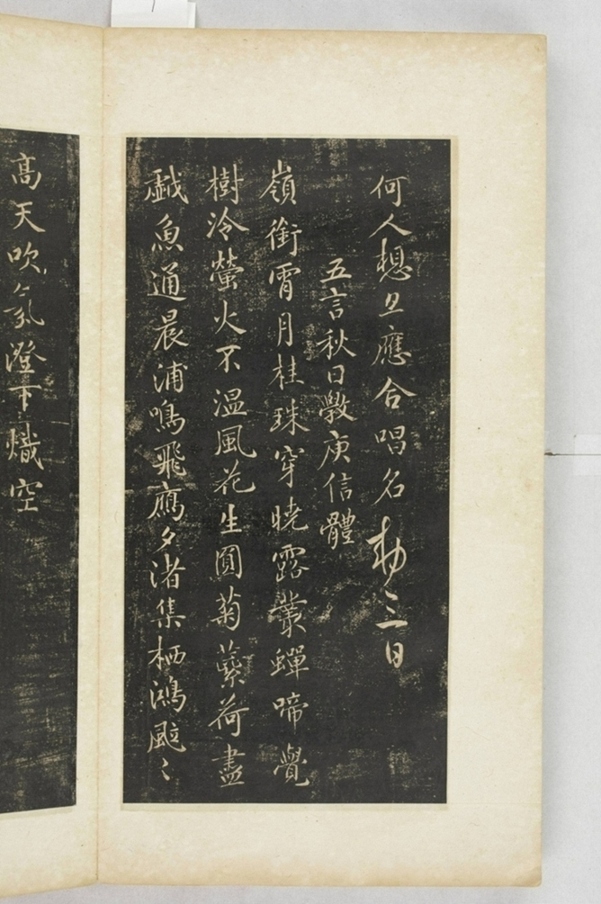 何人想旦應合唱名勅三日
五言秋日斆庾信體
嶺銜宵月桂珠穿曉露叢蟬啼覺
樹冷螢火不溫風花生圓菊蘂荷盡
戲魚通晨浦鳴飛鴈夕渚集栖鴻颯〻
高天吹氛澄下熾空